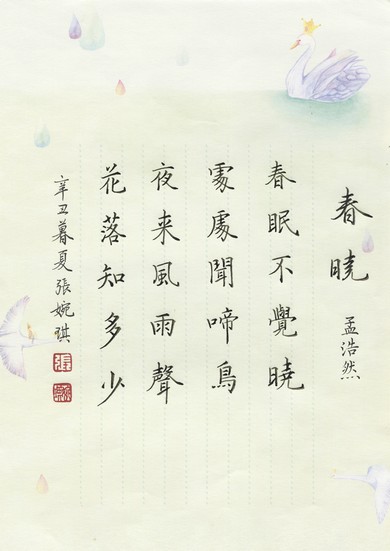 春曉
孟浩然
春眠不覺曉
處處聞啼鳥
夜来風雨聲
花落知多少
辛丑暮夏張婉琪